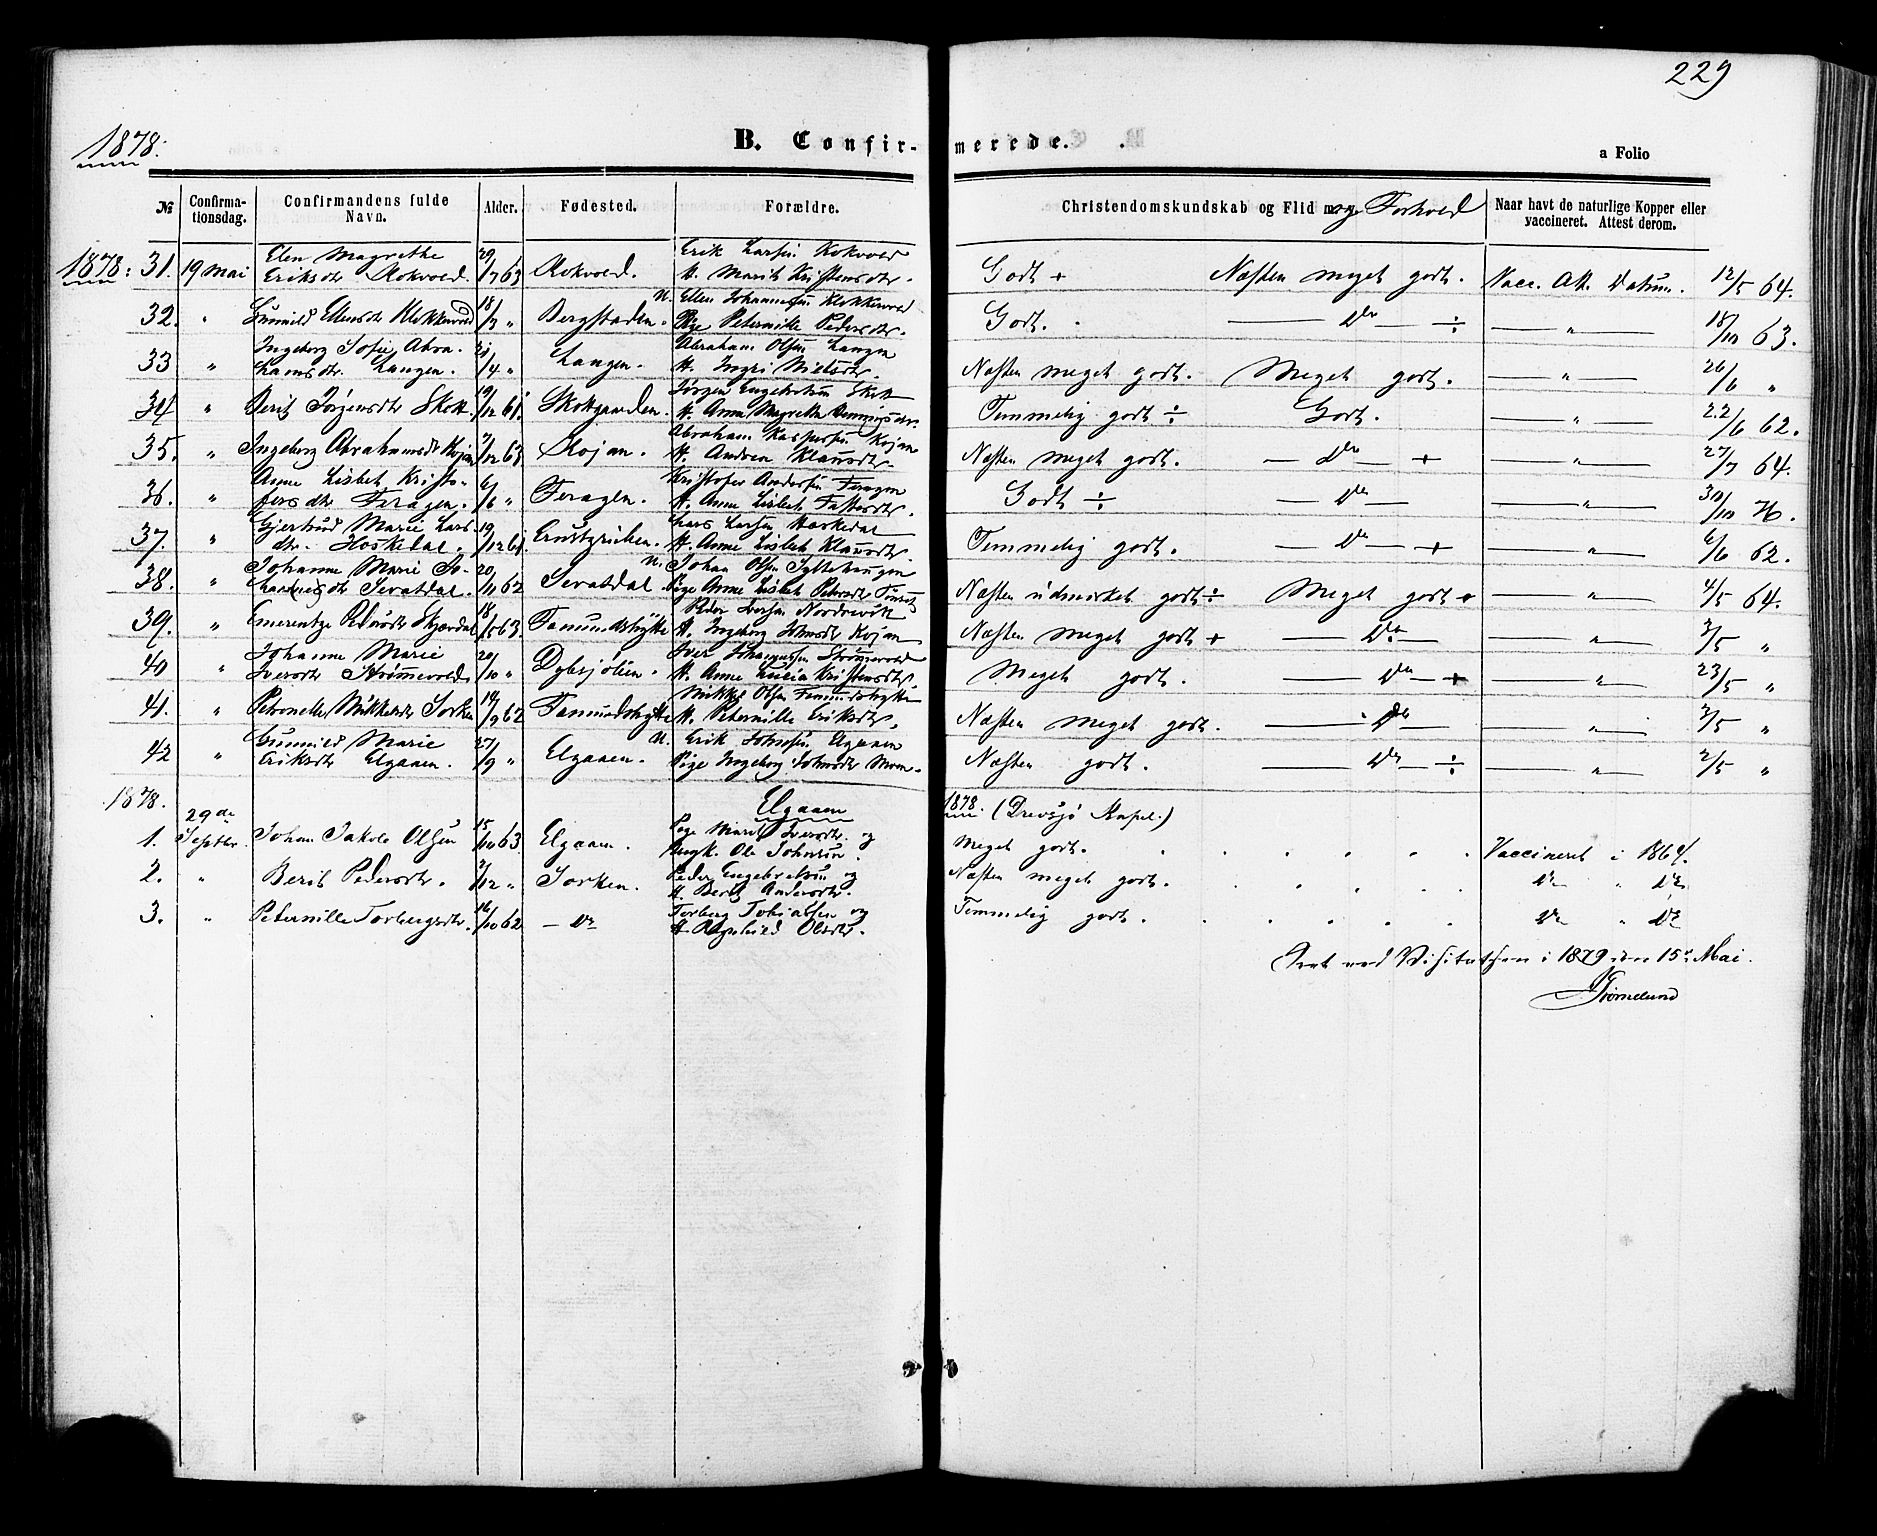 229
1878.
B. Confirmerede.
a Folio
№ Confirmationsdag. Confirmandens fulde Navn. Alder. Fødested. Forældre. Christendomskundskab og Flid og Forhold Naar havt de naturlige Kopper eller vaccineret. Attest derom.
1878: 31. 19 Mai Elen Magrethe Eriksdtr Kokvold. 29/7 63 Kokvold. Erik Larsen Kokvold H. Marit Kristensdtr. Godt + Næsten meget godt. Vacc. Att. Datum. 12/5 64.
32. " Gunnild Ellensdtr Klokkervold 18/3 " Bergstaden. U. Ellen Johannesen Klokkervold Pige Peternille Pedersdtr. Godt. — Do — ÷ — " — 18/10 63.
33 " Ingeborg Sofie Abrahamsdtr. Langen. 21/4 " Langen. Abraham Olsen Langen H. Ingri Nielsdtr. Næsten meget godt. Meget godt. — " — 26/6 "
34 " Berit Jørgensdtr Skott. 19/12 61. Skottgaarden. Jørgen Engebretsen Skott H. Anne Magrethe Henningsdtr. Temmelig godt ÷ Godt. — " — 22/6 62.
35. " Ingeborg Abrahamsdtr Kojan 7/12 63 Kojan. Abraham Kaspersen Kojan H. Andrea Klausdtr. Næsten meget godt. — Do — + — " — 27/7 64.
36. " Anne Lisbet Kristofersdtr Feragen. 6/6 " Feragen. Kristofer Andersen Feragen H. Anne Lisbeth Tostensdtr. Godt ÷ — Do — — " — 30/10 76.
37. " Gjertrud Marie Larsdtr. Hoskedal. 19/12 61. Ernstgruben. Lars Larsen Hoskedal H. Anne Lisbet Klausdtr. Temmelig godt. — Do — + — " — 6/6 62.
38. " Johanne Marie Johannesdtr Sevatdal. 20/11 62 Sevatdal U. Johan Olsen Sylthaugen Pige Anne Lisbet Petersdtr Næsten udmærket godt ÷ Meget godt + — " — 4/5 64.
39. " Emerentze Pedersdtr 18/5 63. Fæmundshytte Peder Iversen Nordvik H. Ingeborg Johnsdtr Kojan Næsten meget godt + — Do — — " — 3/5 "
40 " Johanne Marie Iversdtr Strømmevold 20/10 " Dybsjølien. Iver Johannessen Strømmevold H. Anne Lucia Kristensdtr Meget godt. — Do — + — " — 23/5 "
41. " Petronelle Mikkelsdtr Sorken 14/9 62 Fæmundshytte Mikkel Olsen Fæmundshytte H. Peternille Eriksdtr. Næsten meget godt. — Do — — " — 3/5 "
42 " Gunnild Marie Eriksdtr Elgaaen. 27/9 " Elgaaen. U. Erik Johnsen Elgaaen Pige Ingeborg Johnsdtr Moen. Næsten godt. — Do — ÷ — " — 2/5 "
1878. Elgaaen 1878. (Drevsjø Kapel.)
1. 29de Septbr. Johan Jakob Olsen 15/10 63. Elgaaen. Pige Marit Iversdtr. og Ungk. Ole Johnsen. Meget godt. Vaccineret i 1864.
2. " Berit Pedersdtr. 2/12 " Sorken. Peder Engebretsen og H. Berit Andersdtr. Næsten meget godt. Do " Do
3. " Peternille Torbergsdtr. 16/10 62 — Do Torberg Tobiassen og H. Ragnhild Olsdtr. Temmelig godt. Do " Do
Seet ved Visitatsen i 1879 den 15de Mai.